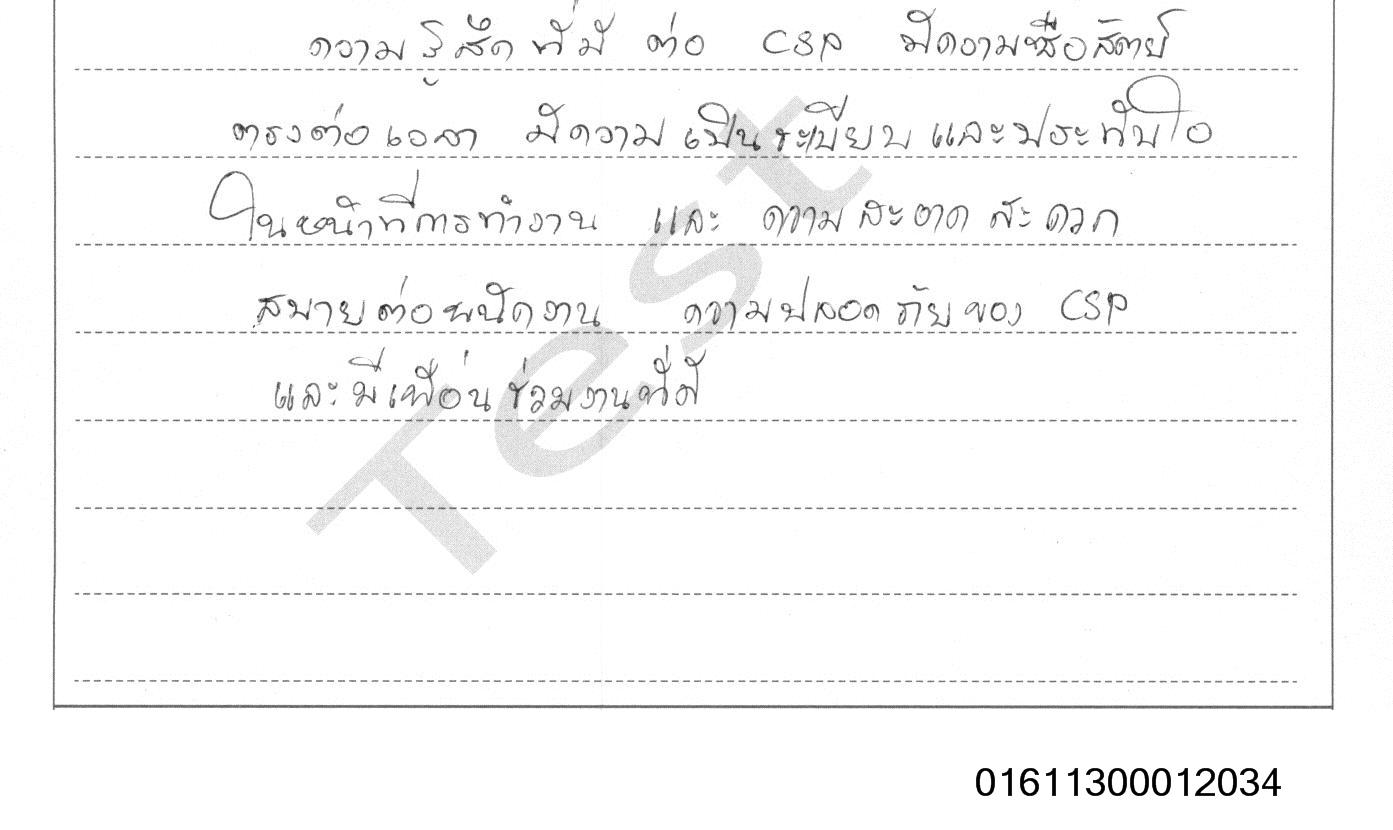 ความรู้สึกที่มี ต่อ CSP มีความซื่อสัตย์
ตรงต่อเวลา มีความเป็นระเบียบและประทับใจ
ในหน้าที่การทำงาน และ ความสะอาด สะดวก
สบายต่อพนักงาน ความปลอดภัยของ CSP
และมีเพื่อนร่วมงานที่ดี
Test
01611300012034